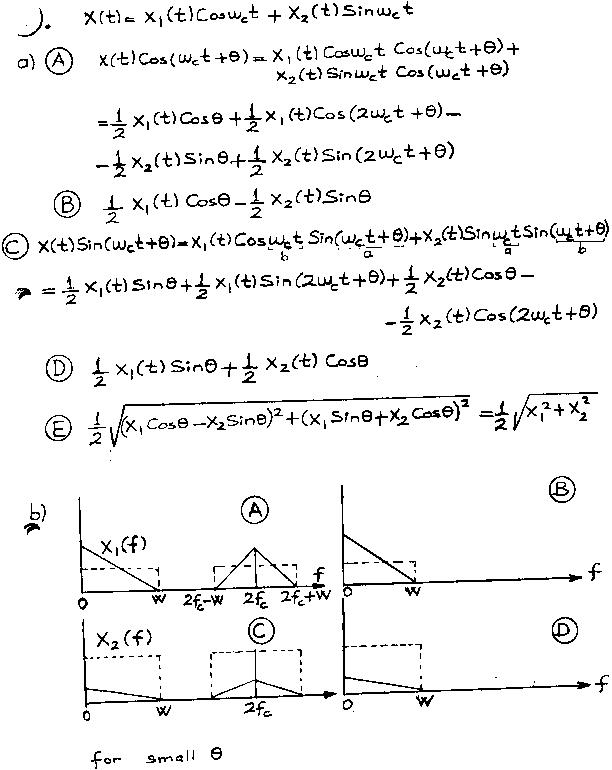 ). X(t)= X₁(t)Cosω꜀t + X₂(t)Sinω꜀t
a) Ⓐ X(t)Cos(ω꜀t+θ)= X₁(t)Cosω꜀t Cos(ω꜀t+θ)+
X₂(t)Sinω꜀t Cos(ω꜀t+θ)
=1/2 X₁(t)Cosθ+1/2 X₁(t)Cos(2ω꜀t+θ)−
−1/2 X₂(t)Sinθ+1/2 X₂(t)Sin(2ω꜀t+θ)
Ⓑ 1/2 X₁(t)Cosθ−1/2 X₂(t)Sinθ
Ⓒ X(t)Sin(ω꜀t+θ)=X₁(t)Cosω꜀t Sin(ω꜀t+θ)+X₂(t)Sinω꜀t Sin(ω꜀t+θ)
b a a b
=1/2 X₁(t)Sinθ+1/2 X₁(t)Sin(2ω꜀t+θ)+1/2 X₂(t)Cosθ−
−1/2 X₂(t)Cos(2ω꜀t+θ)
Ⓓ 1/2 X₁(t)Sinθ+1/2 X₂(t)Cosθ
Ⓔ 1/2 √((X₁Cosθ−X₂Sinθ)²+(X₁Sinθ+X₂Cosθ)²) =1/2 √(X₁²+X₂²)
b) Ⓐ Ⓑ
X₁(f) f f
0 W 2f꜀-W 2f꜀ 2f꜀+W 0 W
X₂(f) Ⓒ Ⓓ
f
0 W 2f꜀ 0 W
for small θ